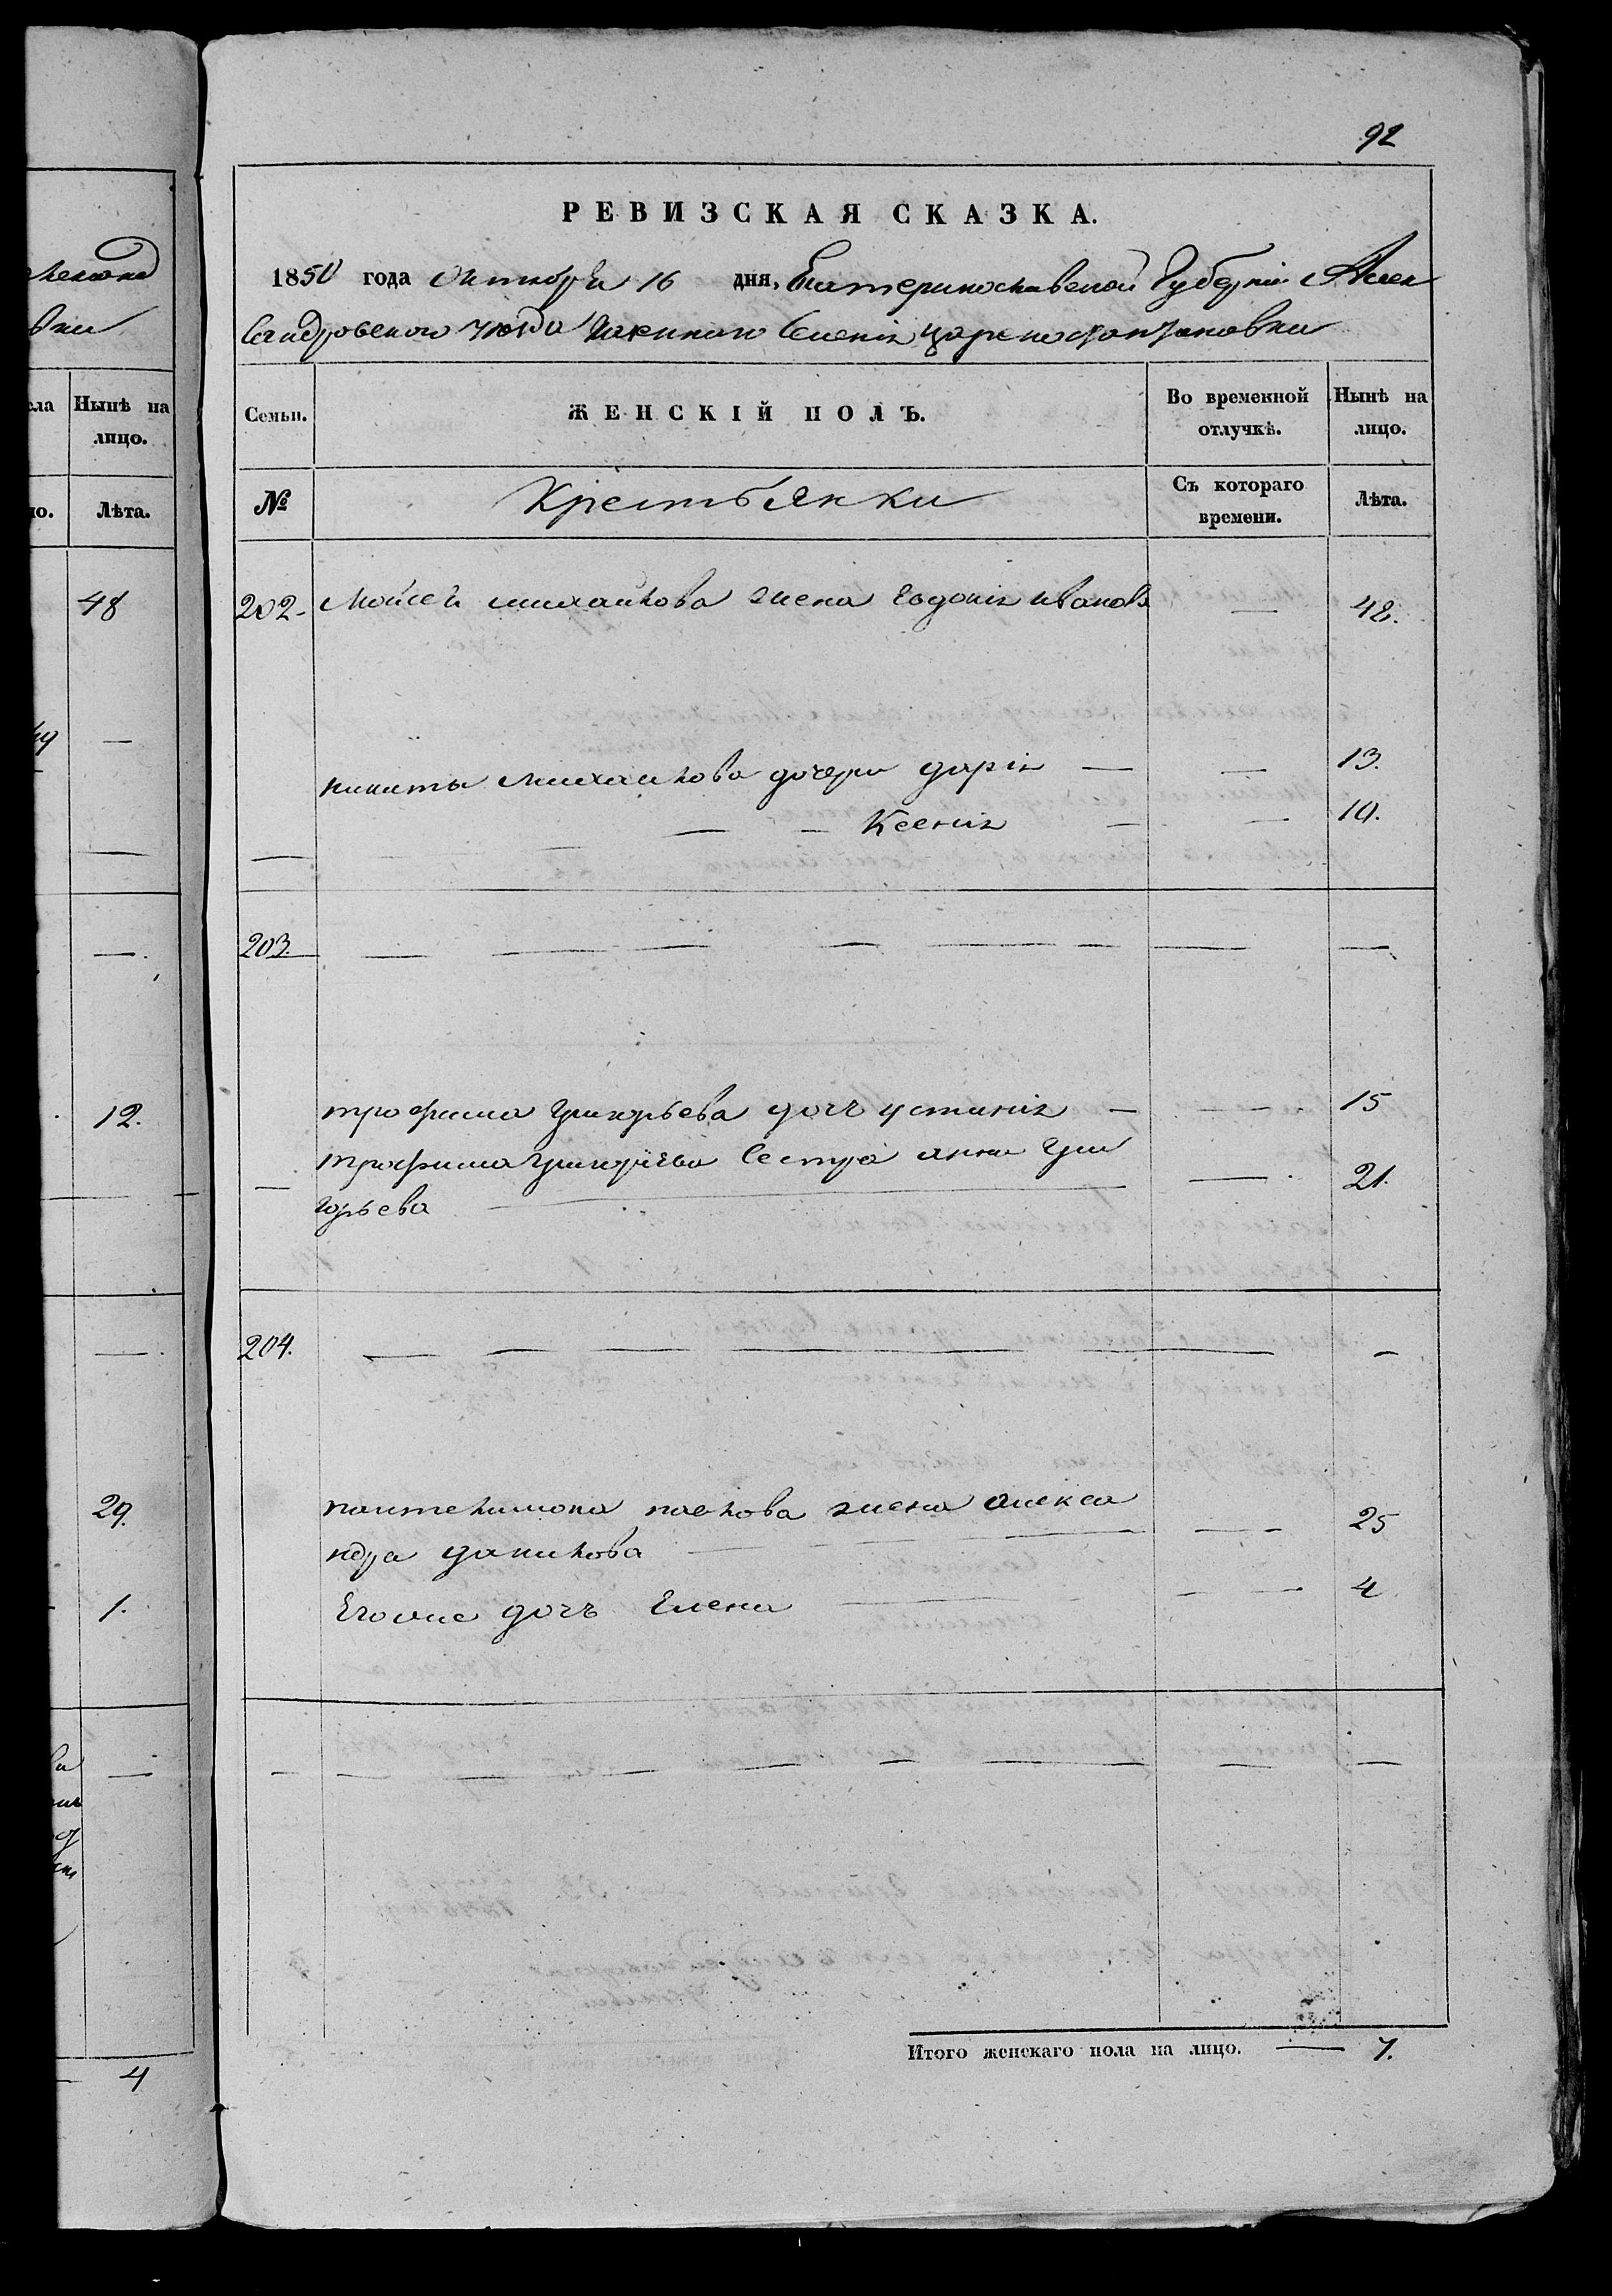 леканд
вки
ела
Нынѣ на
лицо.
Лѣта.
48
12.
29.
1.
4
92
РЕВИЗСКАЯ СКАЗКА.
1850 года Октября 16 дня, Екатеринославской Губерніи Алек
сандровского уезда Казенного Селенія Цареконстантиновки
Семьи.
ЖЕНСКІЙ ПОЛЪ.
Во временной
отлучкѣ.
Нынѣ на
лицо.
№
Крестьянки
Съ котораго
времени.
Лѣта.
202 Мойсей михайлова жена Евдокія иванова — 48.
никиты михайлова дочери дарія — — 13.
— — Ксенія — — 10.
203. — — — — — — —
трофима григорьева дочь устинія — — 15
трофима григорьева Сестра анна гри
горьева — — 21.
204. — — — — — — —
пантелимона павлова жена алекса
ндра данилова — — 25
Егоже дочь Елена — — 4
— — — — — — — —
Итого женскаго пола на лицо. — 7.